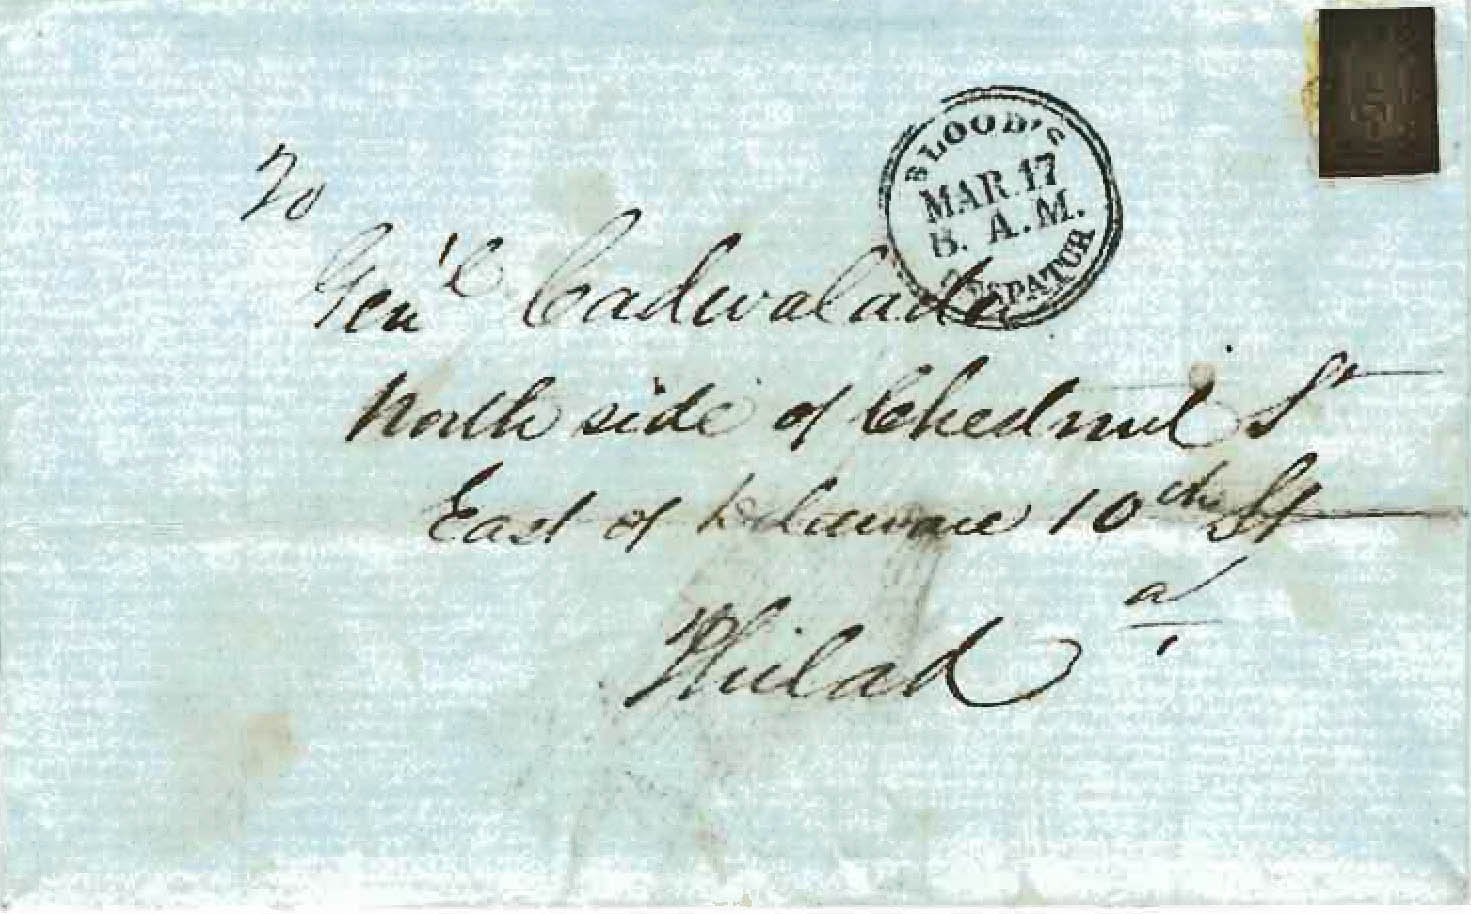 To
Gen'l Cadwalader
North side of Chesnut St
East of Delaware 10th St
Philada
BLOOD'S
MAR. 17
8. A.M.
DESPATCH